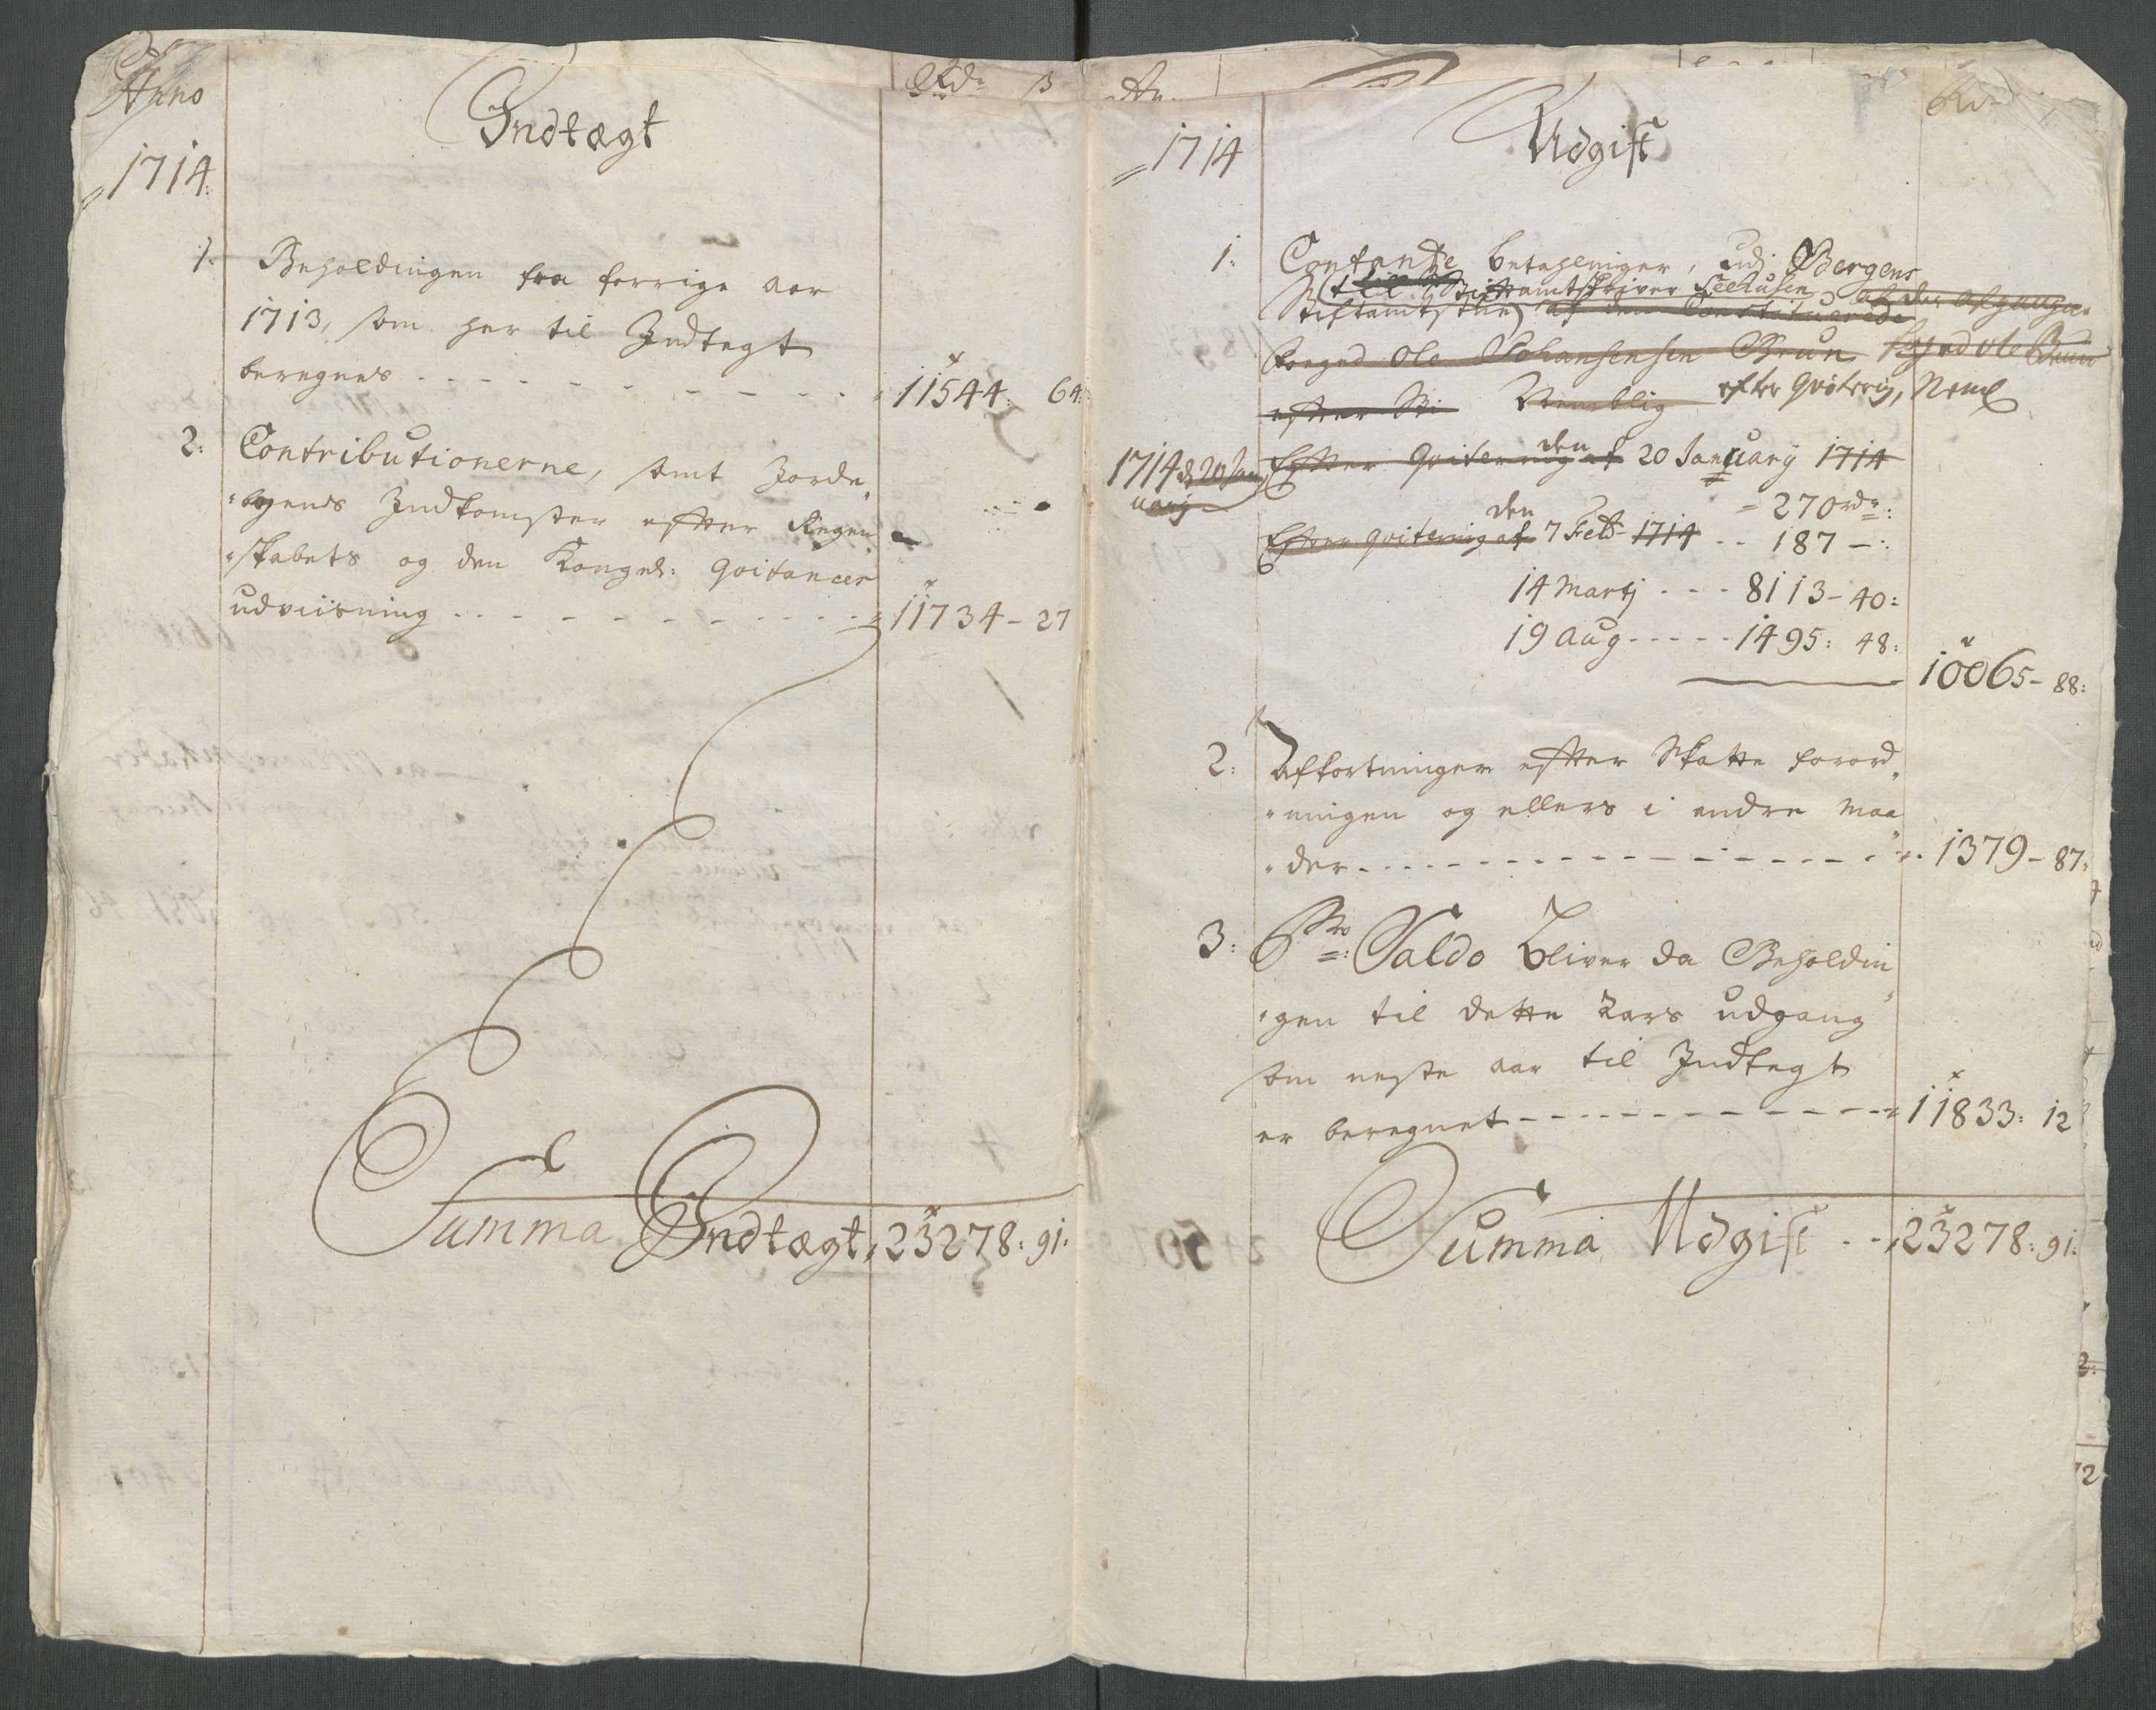 Anno
Rdr ß
Indtægt
1714:
1: Beholdingen fra forrige aar
1713, som her til Indtegt
beregnes - - - - 11544: 64:
2: Contributionerne, samt Jorde„
„bogens Indkomster efter Regen„
„skabets og den Kongel: Qvitances
udviisning - - - - 11734 - 27
Summa Indtægt, 23278: 91:
An
Rdr
Udgift
1714
1: Contante betahlninger, udj Bergens
til Stiftamtskriver Seehusen af den afgangne
Stiftamtstue, af den Constituerede
foged Ole Johansen Brun foged Ole Brun
efter Nemblig efter Qviterīg, Neml
1714 d 20 Janˈ
uarij
Efter Qvitering af den 20 January 1714
- 270 rdr:
Efter Qvitering af den 7 Feb- 1714 - - 187 -:
14 Martj - - - 8113 - 40:
19 Aug - - - - 1495: 48:
10065 - 88:
2: Afkortninger efter Skatte forord„
„ningen og ellers i andre maa„
„der - - - - 1379 - 87:
3: Pro: Saldo bliver da Beholdin„
„gen til dette Aars udgang
som neste aar til Indtegt
er beregnet - - - - 11833: 12
Summa Udgift - - 23278: 91: